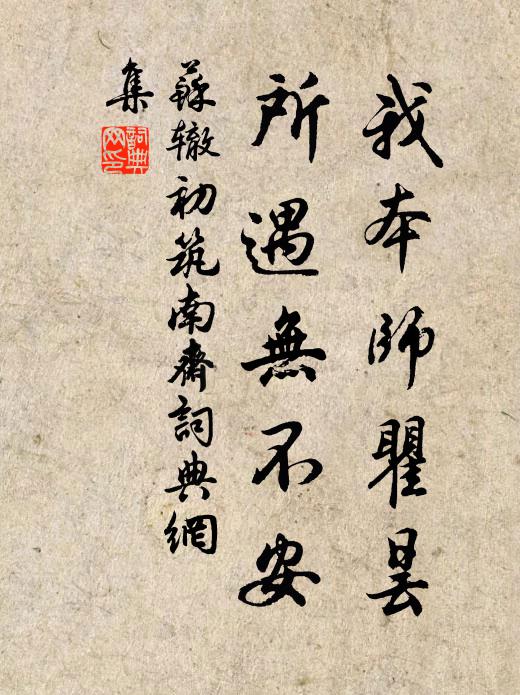 我本師瞿曇
所遇無不安
蘇辙初筑南齋詞典網
集
詞典網印